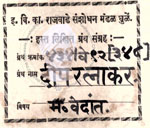 इ. वि. का. राजवाडे संशोधन मंडळ धुळे.
हस्त लिखित ग्रंथ संग्रह
ग्रंथ क्रमांक
ग्रंथ नाम दीपरत्नाकर
विषय सं. वेदांत.